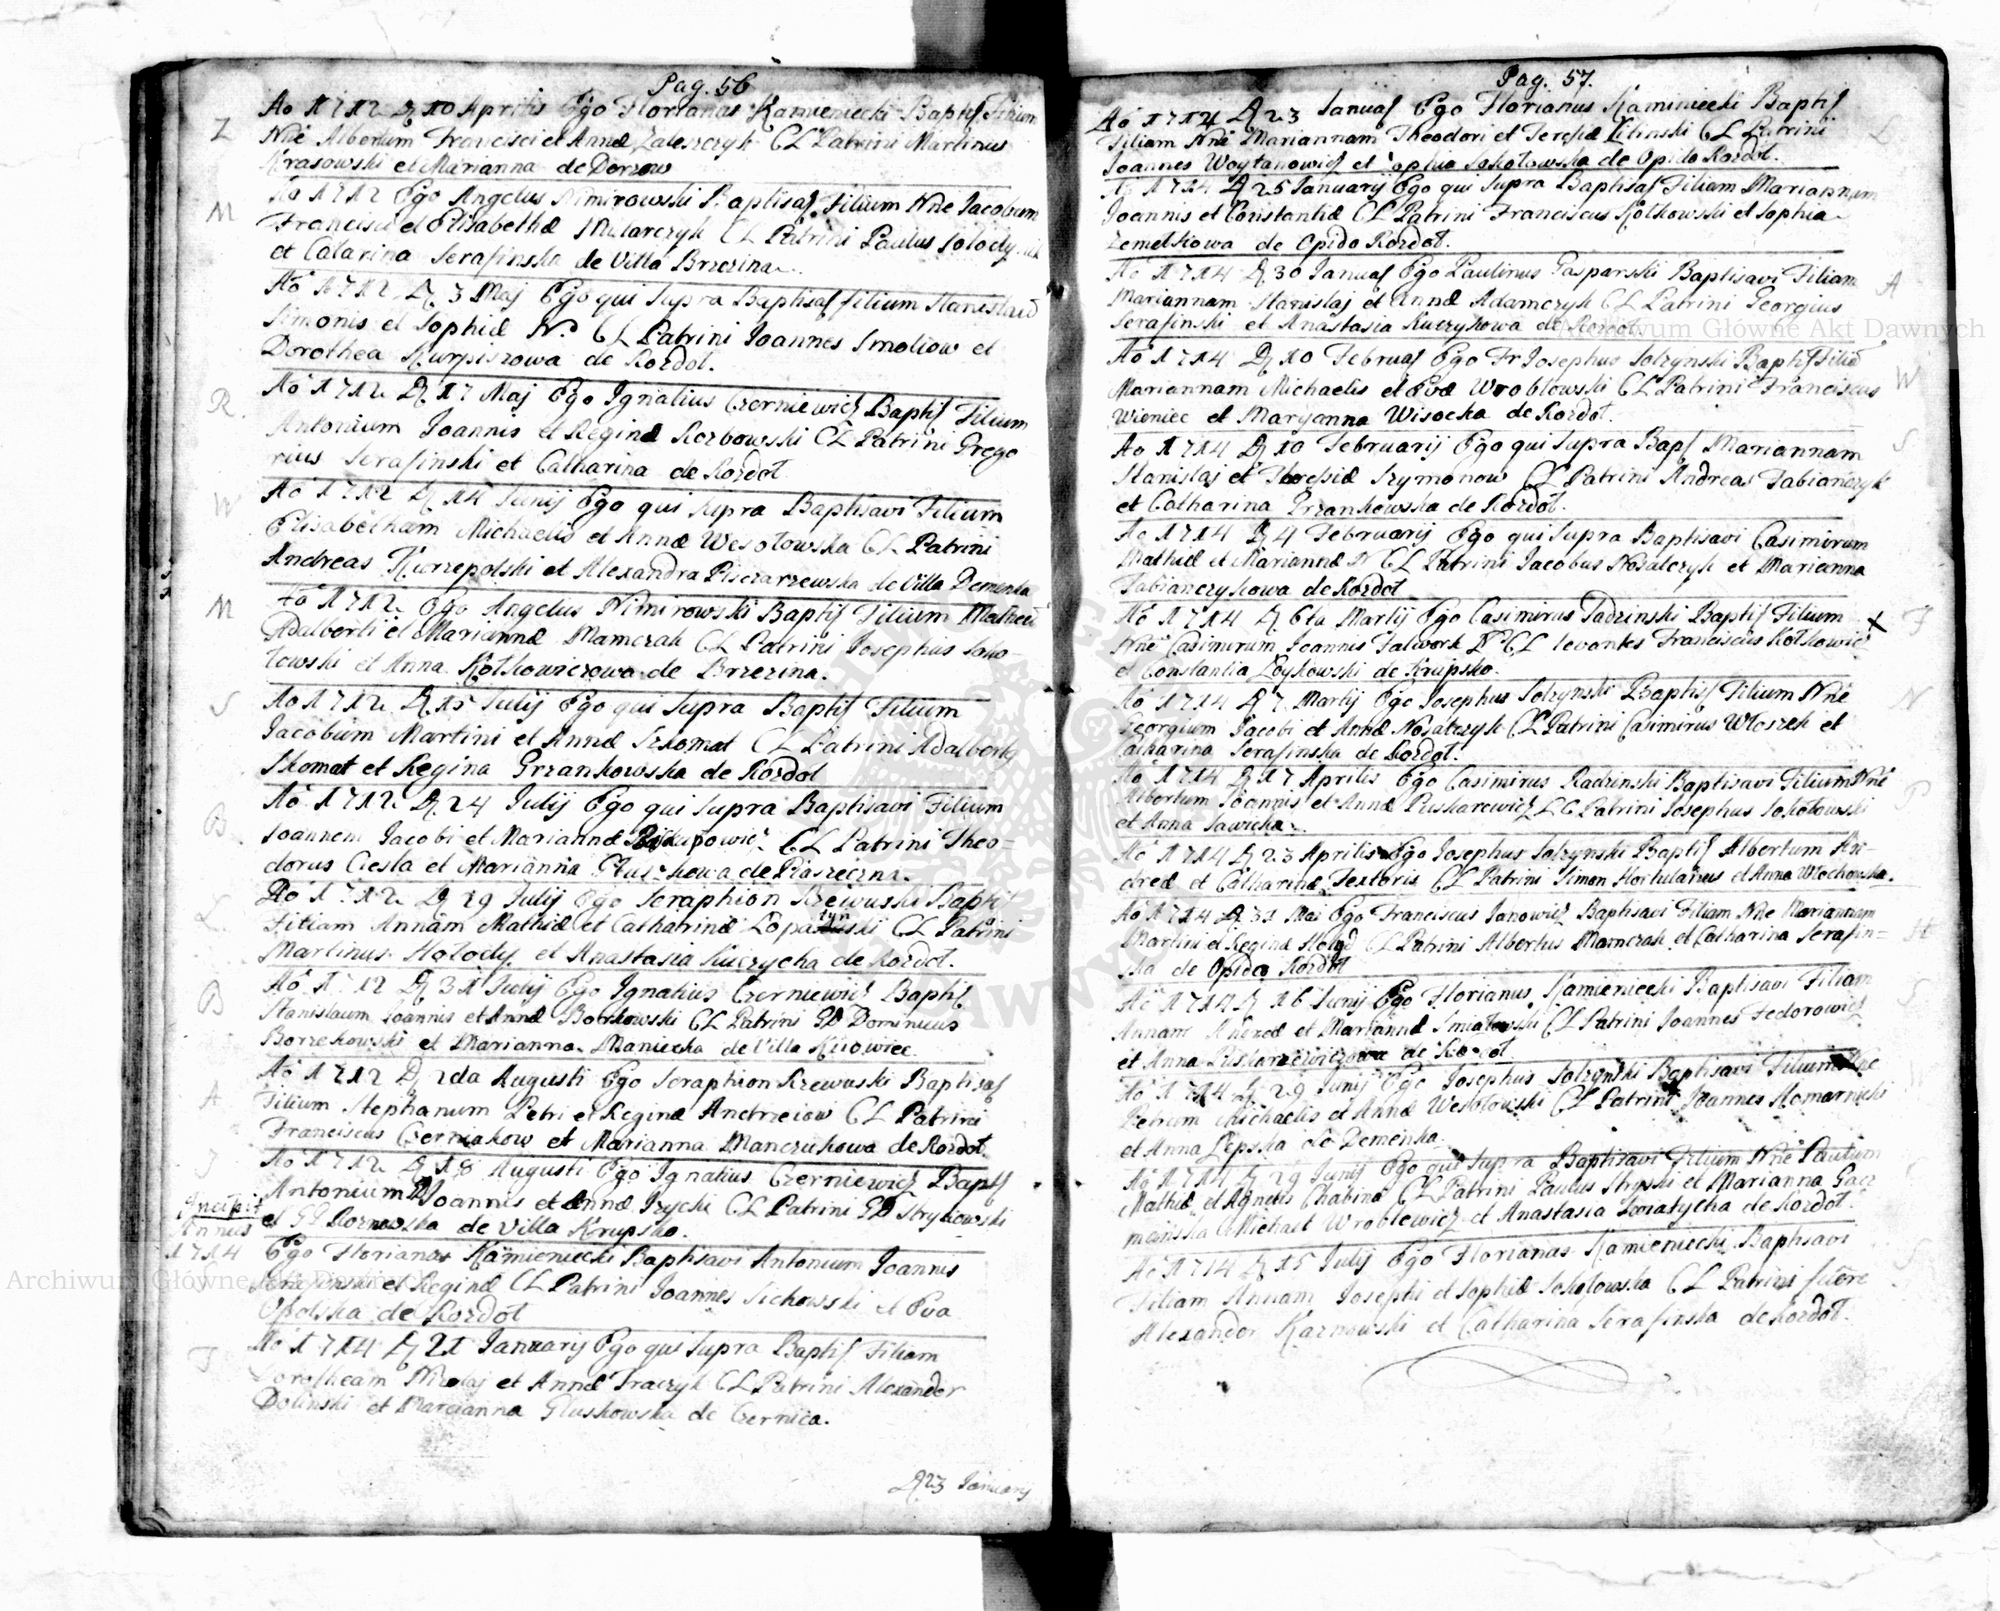 Pag. 56
Z
Ao 1712 D 10 Aprilis Ego Florianus Kamieniecki Baptis Filium
Nne Albertum Francisci et Annæ Zaleszczyk CL Patrini Martinus
Krasowski et Marianna de Dorzow
M
Ao 1712 Ego Angelus Nimirowski Baptisas Filium Nne Jacobum
Francisci et Elisabethæ Mularczyk CL Patrini Paulus
et Catarina Serafinska de Villa Brzezina
Ao 1712 D 3 Maj Ego qui supra Baptisas filium Stanislaum
Simonis et Sophiæ N. CL Patrini Joannes Smoliow et
Dorothea Kurpiszowa de Rozdol.
R
Ao 1712 D 17 Maj Ego Ignatius Czerniewicz Baptis Filium
Antonium Joannis et Reginæ Rozbowski CL Patrini Grego
rius Serafinski et Catharina de Rozdoł
W
Ao 1712 D 14 Junij Ego qui supra Baptisavi Filium
Elisabetham Michaelis et Annæ Wesołowska CL Patrini
Andreas Kurzepolski et Alexandra Piszarzewska de Villa Demenka
M
Ao 1712 Ego Angelus Nimirowski Baptis Filium
Adalberti et Mariannæ Mamczak CL Patrini Josephus Soko-
łowski et Anna Kotkowiczowa de Brzezina.
S
Ao 1712 D 15 Julij Ego qui supra Baptis Filium
Jacobum Martini et Annæ CL Patrini Adalbertus
Skomat et Regina Grzankowska de Rozdol
B
Ao 1712 D 24 Julij Ego qui supra Baptisavi Filium
Joannem Jacobi et Mariannæ CL Patrini Theo-
dorus Ciesla et Marianna de Piaseczna.
L
Ao 1712 D 29 Julij Ego Seraphion Rzewuski Baptis
Filiam Annam Mathiæ et Catharinæ CL Patrini
Martinus Hołody et Anastasia Kuczycha de Rozdoł.
B
Ao 1712 D 31 Julij Ego Ignatius Czerniewicz Baptis
Stanislaum Joannis et Annæ Borkowski CL Patrini GD Dominicus
Borzekowski et Marianna Maniecka de Villa Kiiowiec
A
Ao 1712 D 2da Augusti Ego Seraphion Rzewuski Baptisas
Filium Stephanum Petri et Reginæ Andrzeiow CL Patrini
Franciscus Czerniakow et Marianna Manczukowa de Rozdoł.
J
Ao 1712 D 18 Augusti Ego Ignatius Czerniewicz Baptis
Antonium Joannis et Annæ CL Patrini GD Strykowski
et GD de Villa Krupsko.
Incipit
Annus
1714
Ego Florianus Kamieniecki Baptisavi Antonium Joannis
Serafinski et Reginæ CL Patrini Joannes Sichowski et Eva
Opolska de Rozdoł
T
Ao 1714 D 21 Januarij Ego qui supra Baptis Filiam
Dorotheam Nicolaj et Annæ Traczyk CL Patrini Alexander
Dolinski et Marianna Gluskowska de Czernica.
D 23 January
Pag. 57.
L
Ao 1714 D 23 Januas Ego Florianus Kaminiecki Baptis
Filiam Nne Mariannam Theodori et Teresiæ Litinski CL Patrini
Joannes Woytanowicz et Sophia Sokołowska de Opido Rozdoł.
Ao 1714 D 25 Januarij Ego qui supra Baptisas Filiam Mariannam
Joannis et Constantiæ CL Patrini Franciscus Kotkowski et Sophia
Zemełkowa de Opido Rozdoł.
A
Ao 1714 D 30 Januas Ego Paulinus Gasparski Baptisavi Filiam
Mariannam Stanislaj et Annæ Adamczyk CL Patrini Georgius
Serafinski et Anastasia Kuczykowa de Rozdoł
W
Ao 1714 D 10 Februas Ego Fr Josephus Solzynski Baptis Filiã
Mariannam Michaelis et Evæ Wroblowski CL Patrini Franciscus
Wieniec et Maryanna Wisocka de Rozdoł.
S
Ao 1714 D 10 Februarij Ego qui supra Bap Mariannam
Stanislaj et Theresiæ Szymonow CL Patrini Andreas Fabianczyk
et Catharina Grzankowska de Rozdoł.
Ao 1714 D 4 Februarij Ego qui supra Baptisavi Casimirum
Mathiæ et Mariannæ N CL Patrini Jacobus Nosalczyk et Marianna
Fabianczykowa de Rozdoł
Ao 1714 D 6ta Martij Ego Casimirus Padzinski Baptis Filium X F
Nne Casimirum Joannis Falwork CL levantes Franciscus Kotkowicz
et Constantia Zoykowski de Krupsko.
N
Ao 1714 D 7 Martij Ego Josephus Solzynski Baptis Filium Nne
Georgium Jacobi et Annæ Nosalczyk CL Patrini Casimirus Wloszek et
Catharina Serafinska de Rozdoł.
P
Ao 1714 D 17 Aprilis Ego Casimirus Radzinski Baptisavi Filium Nne
Albertum Joannis et Annæ Puskarewicz LC Patrini Josephus Sokołowski
et Anna Sawicka.
Ao 1714 D 23 Aprilis Ego Josephus Solzynski Baptis Albertum An-
dreæ et Catharinæ Textoris CL Patrini Simon Hortulanus et Anna Wlochowska.
H
Ao 1714 D 31 Mai Ego Franciscus Janowicz Baptisavi Filiam Nne Mariannam
Martini et Reginæ CL Patrini Albertus Mamczak et Catharina Serafin-
ska de Opido Rozdoł
S
Ao 1714 D 16 Junij Ego Florianus Kamieniecki Baptisavi Filiam
Annam Andreæ et Mariannæ Smiałowski CL Patrini Joannes Fedorowicz
et Anna Piskarzewiczowa de Rozdoł
Ao 1714 D 29 Junij Ego Josephus Solzynski Baptisavi Filium Nne
Petrum Michaelis et Annæ Wesołowski CL Patrini Joannes Komarnicki
et Anna Lepska de Demenka.
Ao 1714 D 29 Junij Ego qui supra Baptisavi Filium Nne Paulum
Mathiæ et Agnetis Chabina CL Patrini Paulus Stryski et Marianna Gacz
manska Michael Wroblewicz et Anastasia de Rozdoł.
S
Ao 1714 D 15 Julij Ego Florianus Kamieniecki Baptisavi
Filiam Annam Josephi et Sophiæ Sokołowska CL Patrini fuere
Alexander Karnowski et Catharina Serafinska de Rozdoł.
Archiwum Główne Akt Dawnych
Archiwum Główne Akt Dawnych